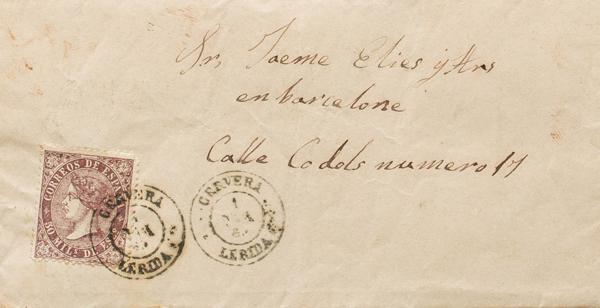 Sr, Jaeme Elies y Hrs
en barcelone
Calle Codols numero 17
CORREOS DE ESPAÑA
50 MIL.S DE ESC.
CERVERA
1
LERIDA
CERVERA
1
LERIDA